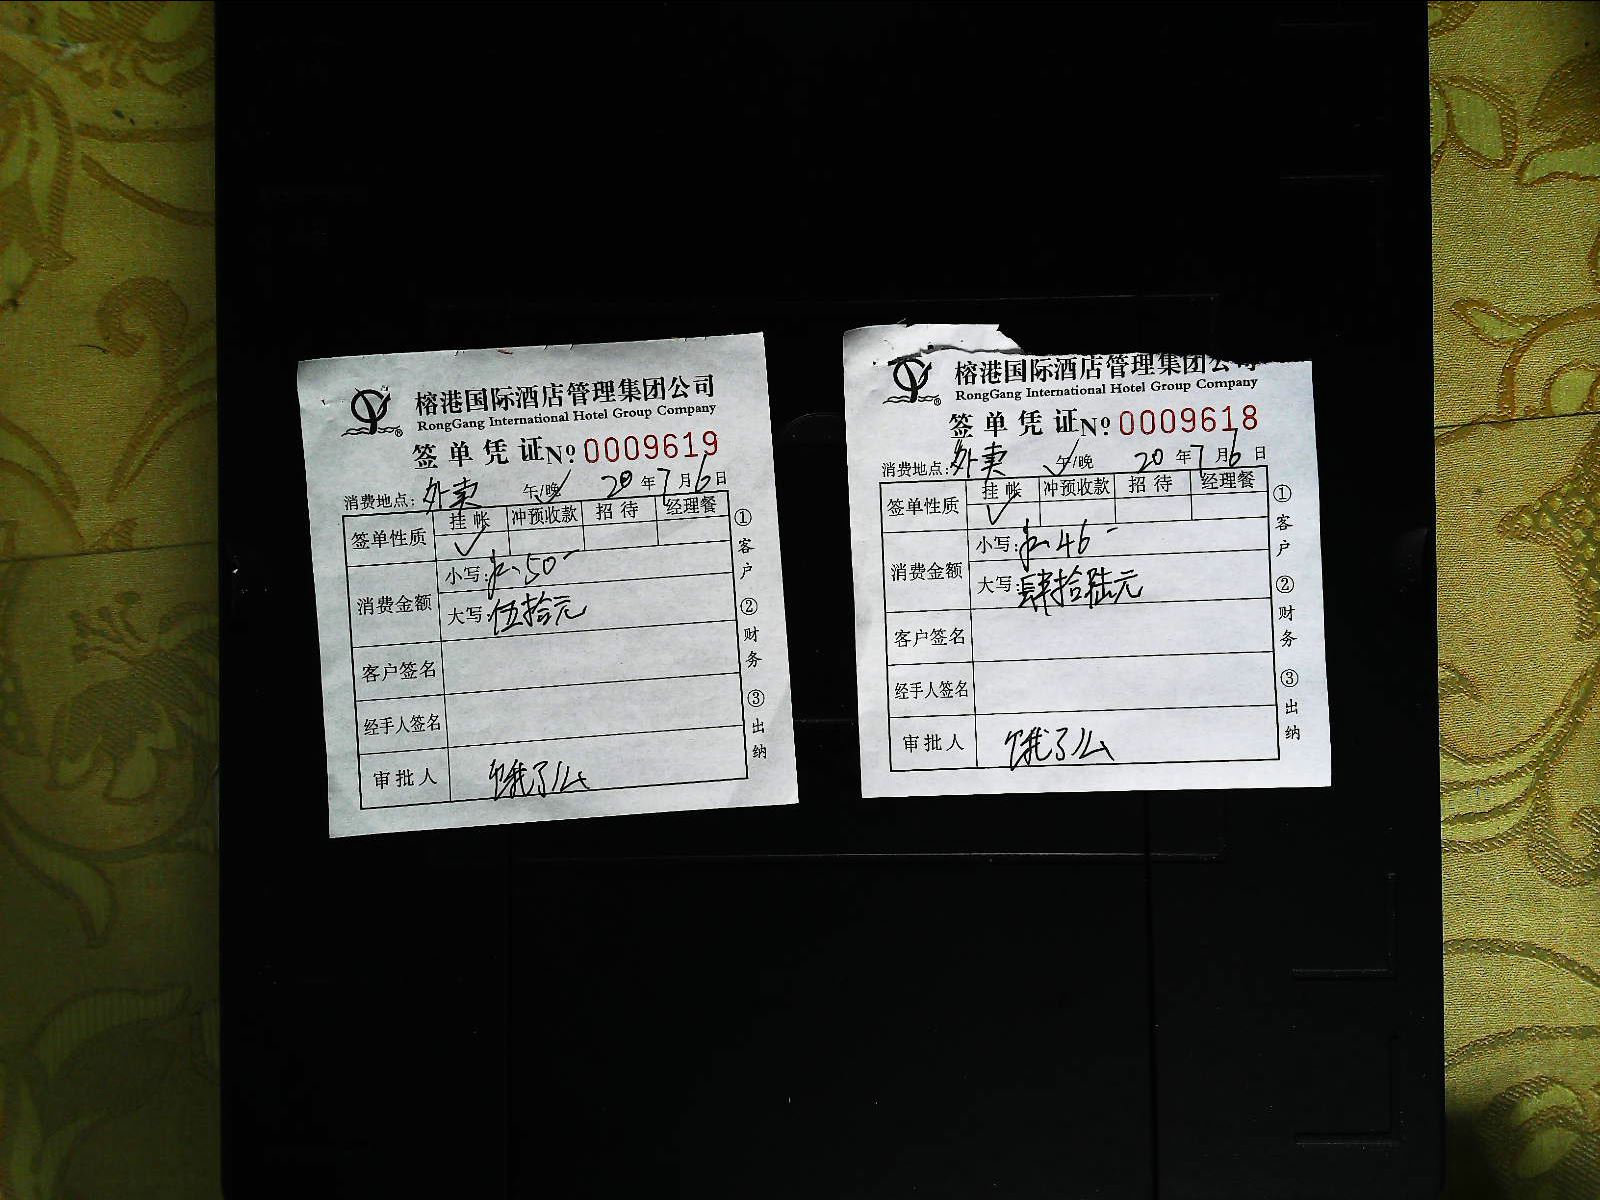 榕港国际酒店管理集团公司
RongGang International Hotel Group Company
签单凭证 Nº 0009619
消费地点: 外卖 午/晚 20 年 7 月 6 日
签单性质 挂帐 冲预收款 招待 经理餐
✓
消费金额
小写: 50-
大写: 伍拾元
客户签名
经手人签名
审批人 饿了么
①客户 ②财务 ③出纳
榕港国际酒店管理集团公司
RongGang International Hotel Group Company
签单凭证 Nº 0009618
消费地点: 外卖 午/晚 20 年 7 月 6 日
签单性质 挂帐 冲预收款 招待 经理餐
✓
消费金额
小写: 46-
大写: 肆拾陆元
客户签名
经手人签名
审批人 饿了么
①客户 ②财务 ③出纳